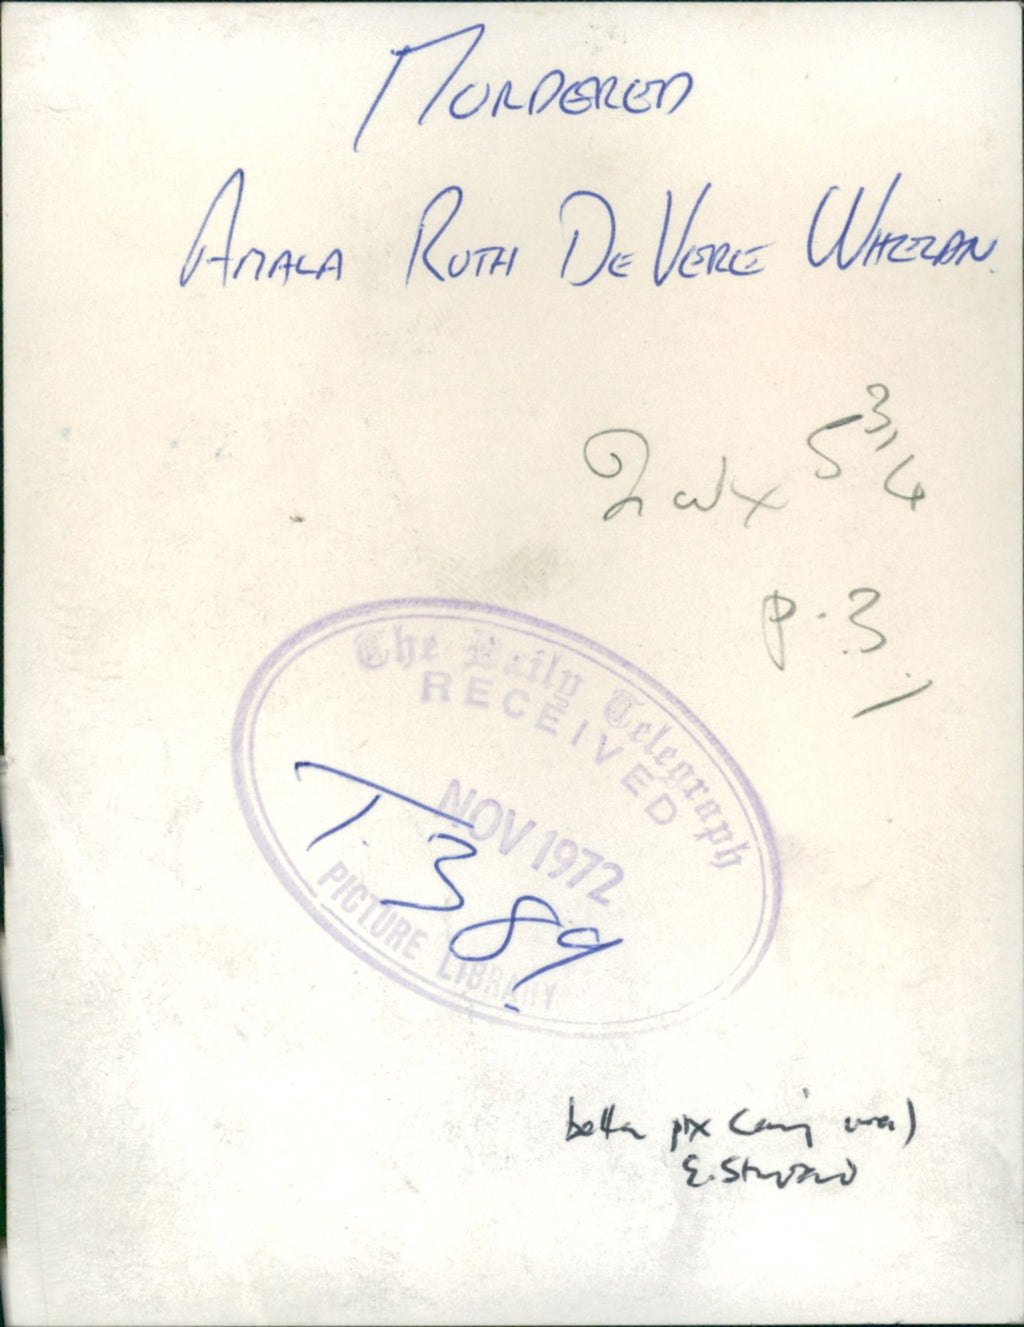 MURDERED
AMALA RUTH DE VERE WHELAN
2 col x 5 3/4
p.3
The Daily Telegraph
RECEIVED
NOV 1972
T.389
PICTURE LIBRARY
better pix
E.